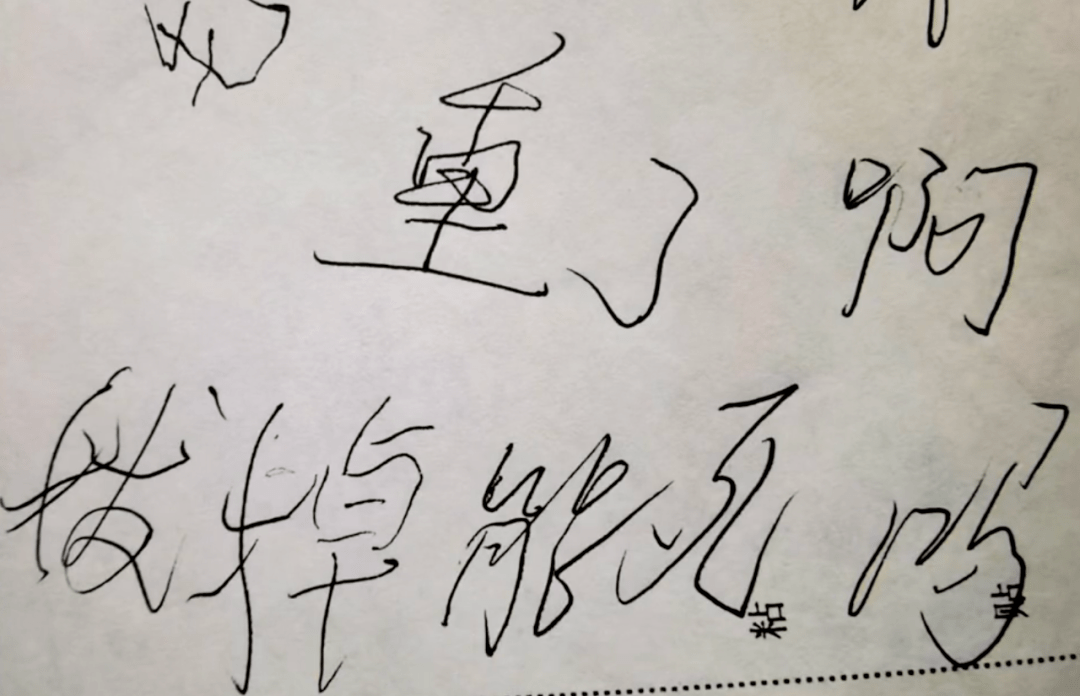 重了啊
拔掉能死吗
粘贴